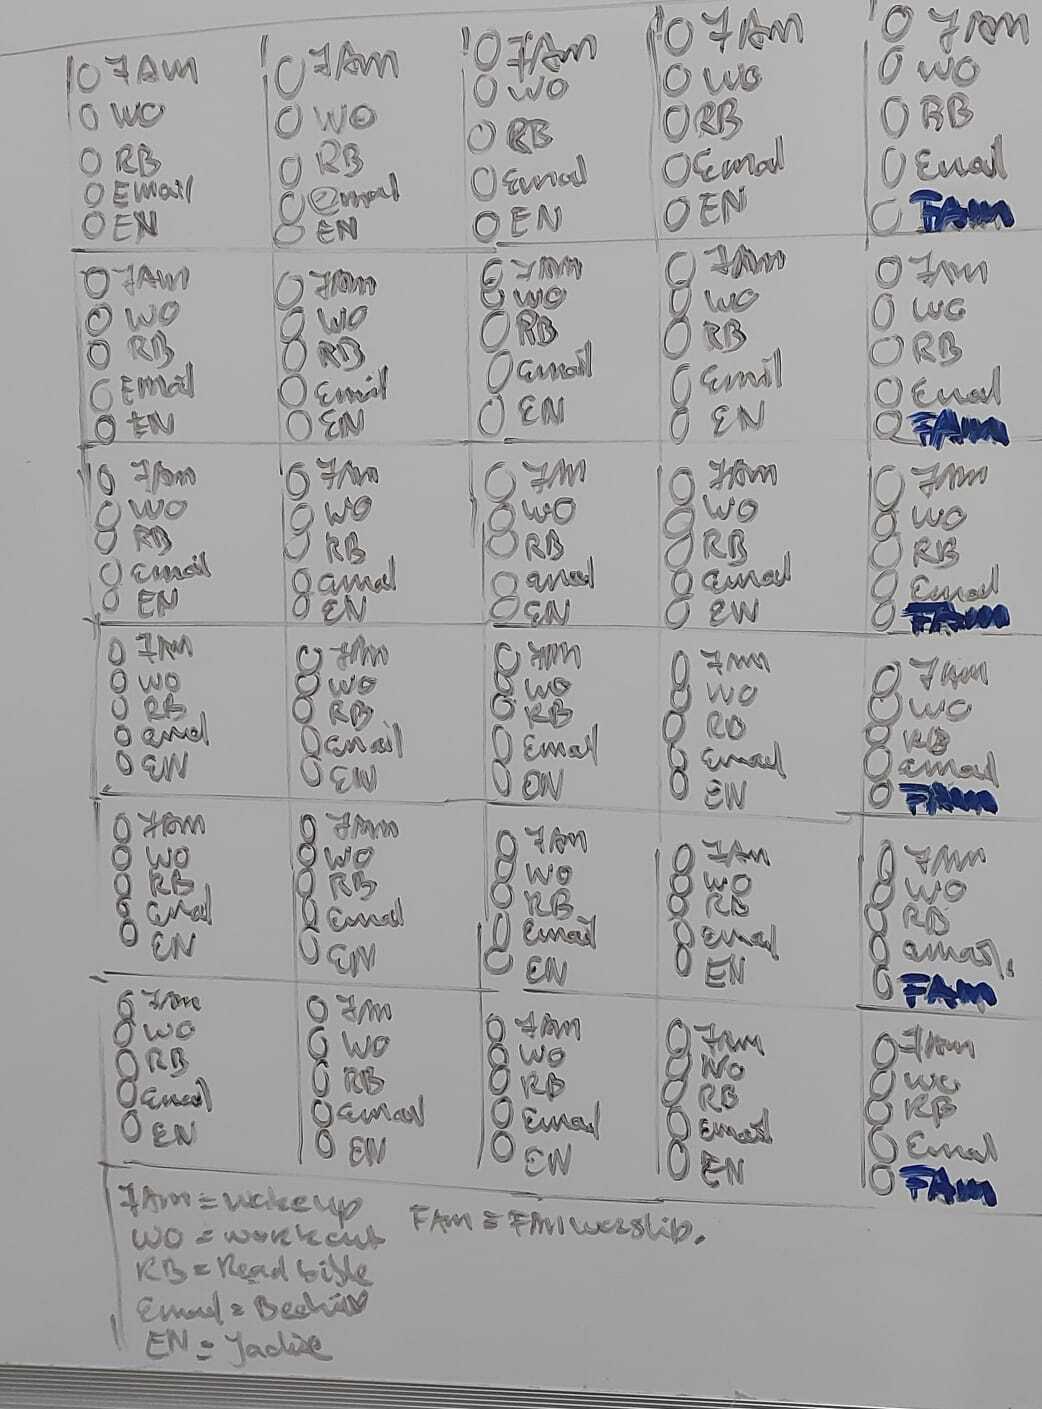 7Am
WO
RB
Email
EN
7Am
WO
RB
email
EN
7Am
WO
RB
Email
EN
7Am
WO
RB
Email
EN
7Am
WO
RB
Email
FAm
7Am
WO
RB
Email
EN
7Am
WO
RB
Email
EN
7Am
WO
RB
Email
EN
7Am
WO
RB
Email
EN
7Am
WO
RB
Email
FAm
7Am
WO
RB
Email
EN
7Am
WO
RB
email
EN
7Am
WO
RB
email
EN
7Am
WO
RB
Email
EN
7Am
WO
RB
Email
FAm
7Am
WO
RB
email
EN
7Am
WO
RB
Email
EN
7Am
WO
RB
Email
EN
7Am
WO
RB
Email
EN
7Am
WO
RB
Email
FAm
7Am
WO
RB
email
EN
7Am
WO
RB
Email
EN
7Am
WO
RB
Email
EN
7Am
WO
RB
Email
EN
7Am
WO
RB
email
FAm
7Am
WO
RB
Email
EN
7Am
WO
RB
Email
EN
7Am
WO
RB
Email
EN
7Am
WO
RB
Email
EN
7Am
WO
RB
Email
FAm
7Am = wake up
WO = workout
RB = Read bible
Email =
EN = Jackie
FAm = FAM worship.